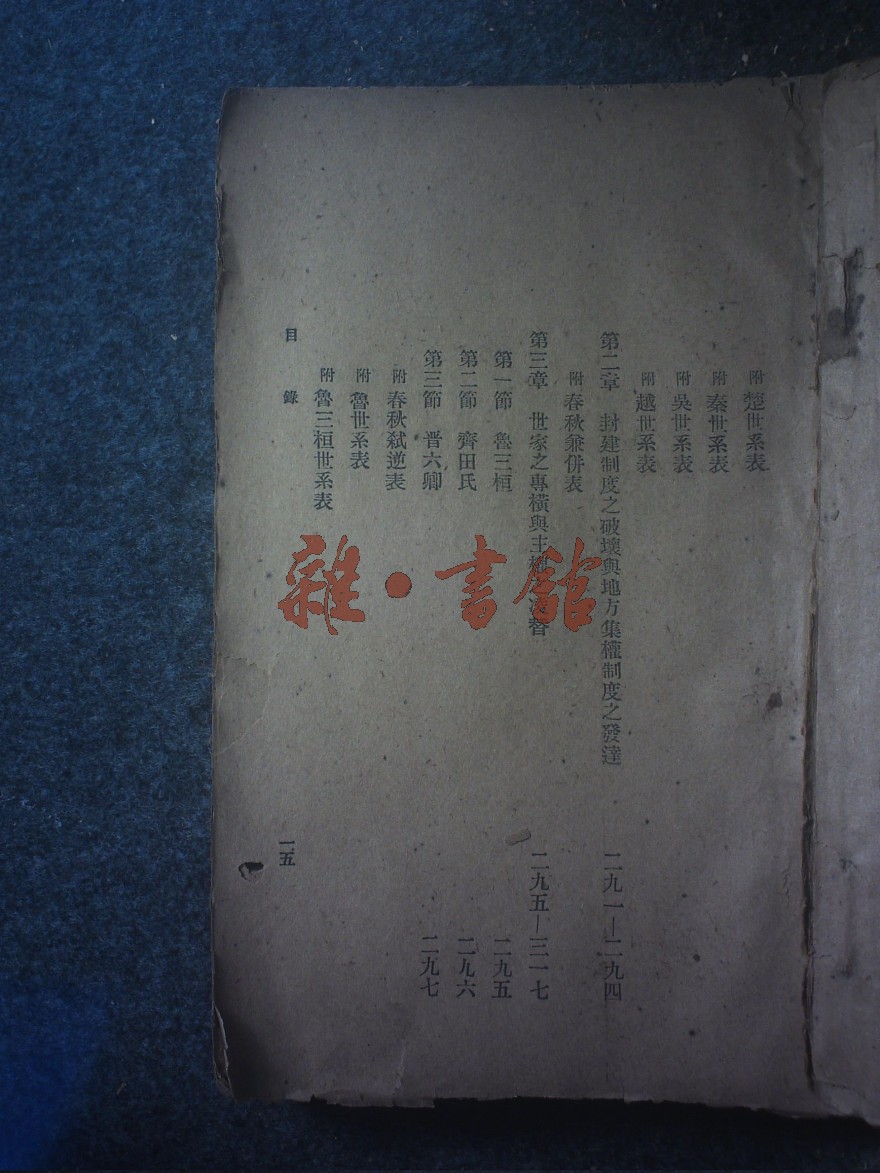 附 楚世系表
附 秦世系表
附 吳世系表
附 越世系表
第二章 封建制度之破壞與地方集權制度之發達 二九一—二九四
附 春秋兼併表
第三章 世家之專橫與主權 替 二九五—三一七
第一節 魯三桓 二九五
第二節 齊田氏 二九六
第三節 晋六卿 二九七
附 春秋弑逆表
附 魯世系表
附 魯三桓世系表
目錄 一五
雜·書館